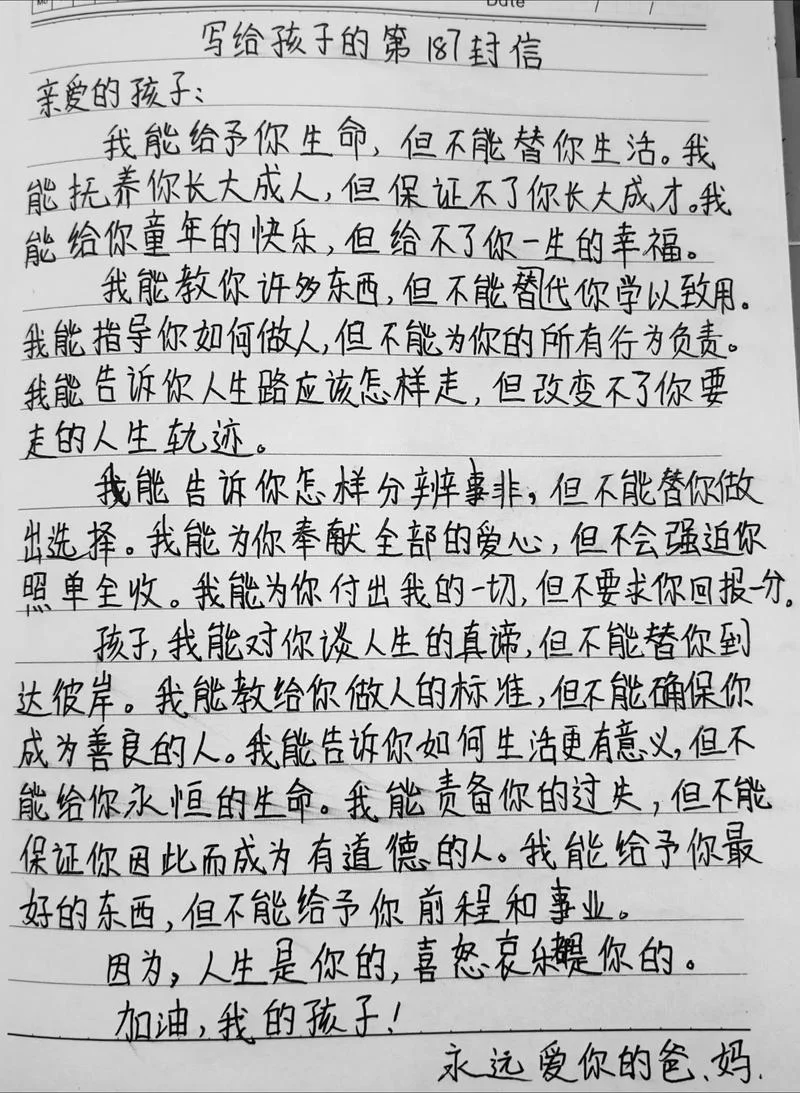 Date / /
写给孩子的第187封信
亲爱的孩子：
我能给予你生命，但不能替你生活。我
能抚养你长大成人，但保证不了你长大成才。我
能给你童年的快乐，但给不了你一生的幸福。
我能教你许多东西，但不能替代你学以致用。
我能指导你如何做人，但不能为你的所有行为负责。
我能告诉你人生路应该怎样走，但改变不了你要
走的人生轨迹。
我能告诉你怎样分辨事非，但不能替你做
出选择。我能为你奉献全部的爱心，但不会强迫你
照单全收。我能为你付出我的一切，但不要求你回报一分。
孩子，我能对你谈人生的真谛，但不能替你到
达彼岸。我能教给你做人的标准，但不能确保你
成为善良的人。我能告诉你如何生活更有意义，但不
能给你永恒的生命。我能责备你的过失，但不能
保证你因此而成为有道德的人。我能给予你最
好的东西，但不能给予你前程和事业。
因为，人生是你的，喜怒哀乐都是你的。
加油，我的孩子！
永远爱你的爸、妈.